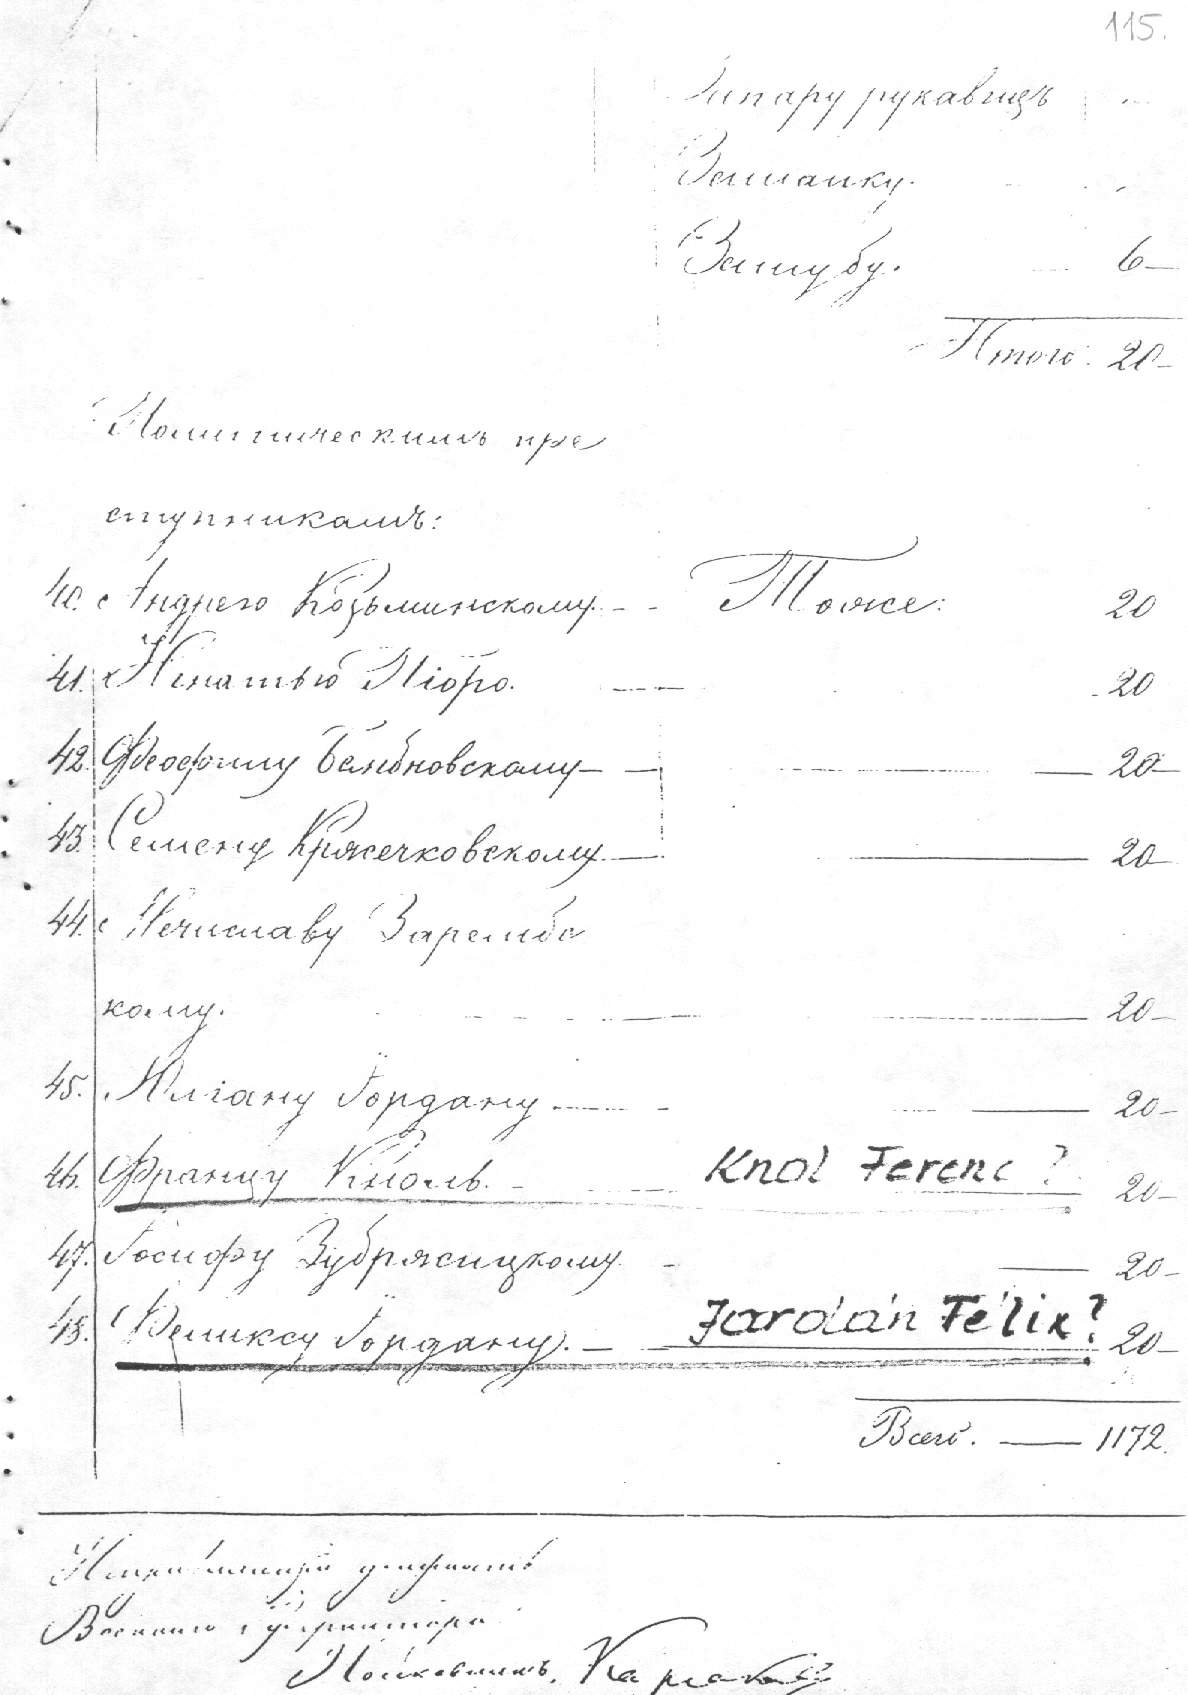 115.
За пару рукавицъ
За шапку.
За шубу. 6—
Итого: 20—
Политическимъ пре
ступникамъ:
40. Андрею Козьминскому — Тоже: 20
41. Игнатью Піоро. — 20
42. Феофилу Бембновскому — 20—
43. Семену Кржечковскому — 20—
44. Мечиславу Зарембс
кому. — 20—
45. Юліану Іордану — 20—
46. Францу Кноль. — Knol Ferenc? 20—
47. Іосифу Зубржицкому — 20—
48. Феликсу Іордану. — Jardán Félix? 20—
Всего. — 1172.
Исправляющій должность
Военнаго Губернатора
Полковникъ,